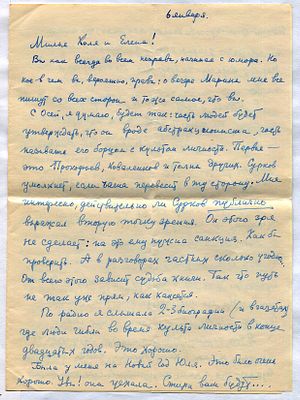 6 января.
Милые Коля и Елена!
Вы как всегда во всем неправы, начиная с юмора. Но
кое в чем вы, вероятно, правы: о вечере Марины мне все
пишут со всех сторон и то же самое, что вы.
С Осей, я думаю, будет так: часть людей будет
утверждать, что он вроде абстракциониста, часть
назовёт его борцом с культом личности. Первые —
это Прокофьев, Коваленков и толпа других. Сурков
умолкнет, если чаша перевесит в ту сторону. Мне
интересно, действительно ли Сурков публично
выражал вторую точку зрения. Он этого зря
не сделает: на это ему нужна санкция. Как бы
проверить. А в разговорах частных сколько угодно.
От всего этого зависит судьба книги. Так что путь
не так уже прям, как кажется.
По радио я слышала 2-3 биографии (и в газетах)
где люди гибли во время культа личности в конце
двадцатых годов. Это хорошо.
Была у меня на Новый год Юля. Это было очень
хорошо. Увы! она уехала. Стихи вам будут....